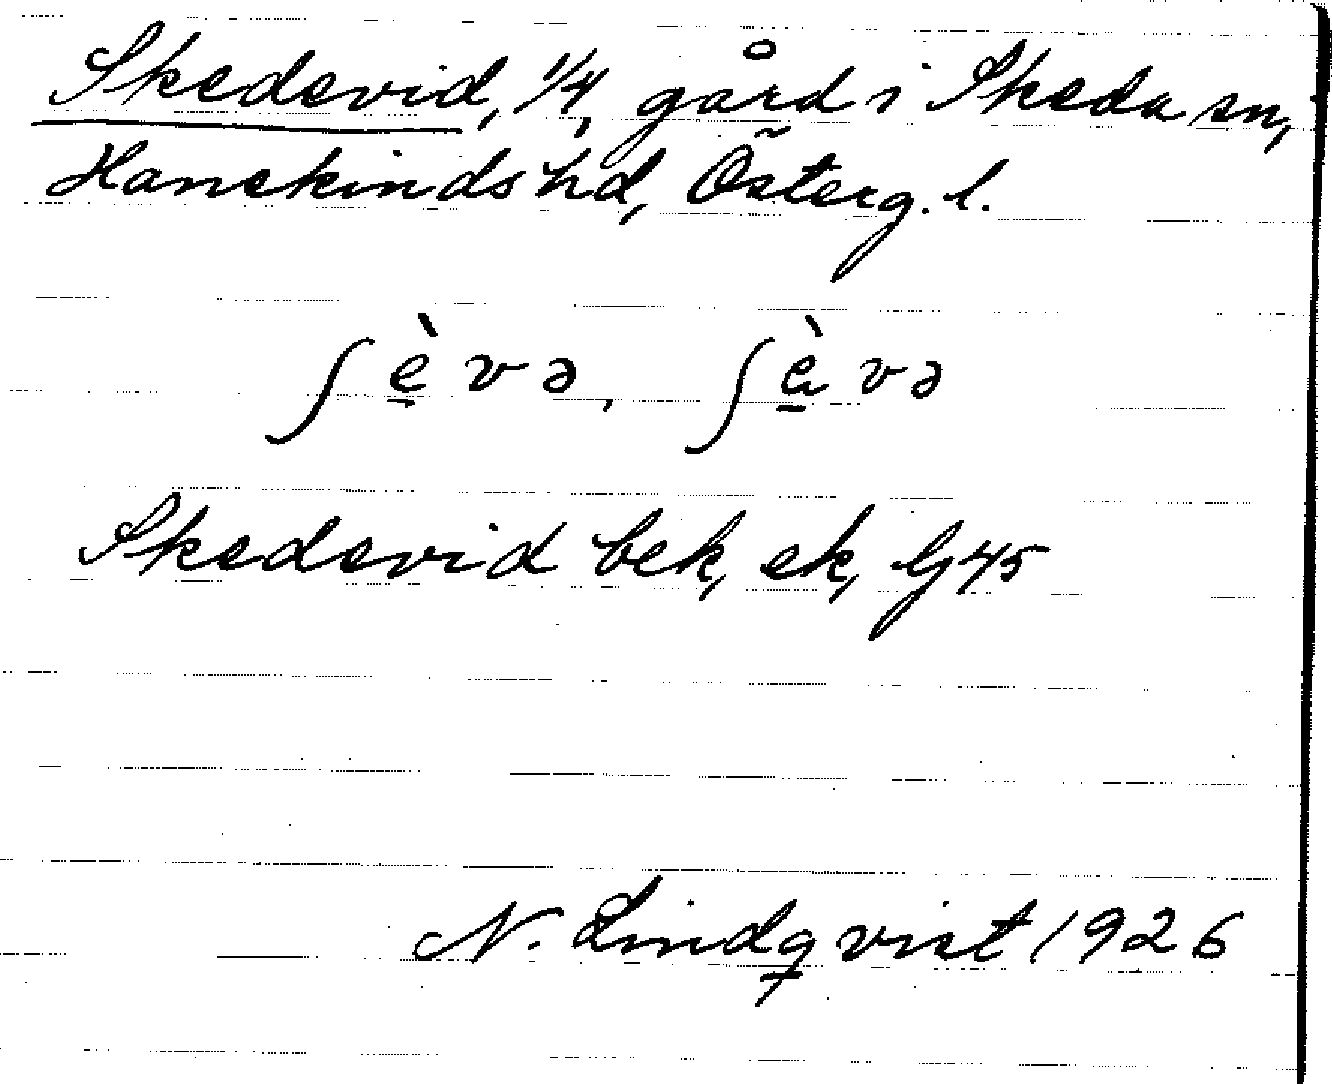 Skedevid, 1/4, gård i Skeda sn,
Hanekinds hd, Österg. l.
ʃè̱və, ʃè̱və
Skedevid bek, ek, Gj 45
N. Lindqvist 1926